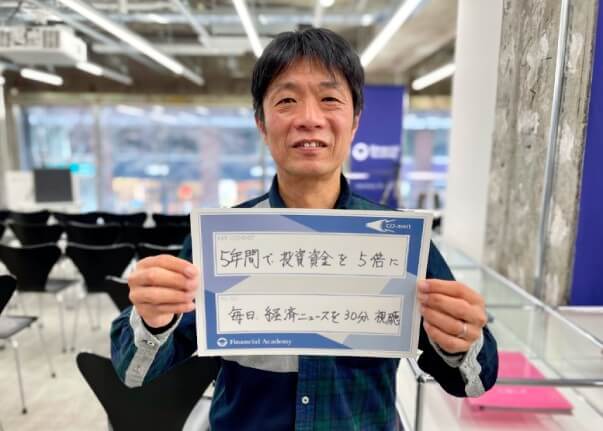 CO-mit
5年間で投資資金を5倍に
毎日、経済ニュースを30分視聴
Financial Academy